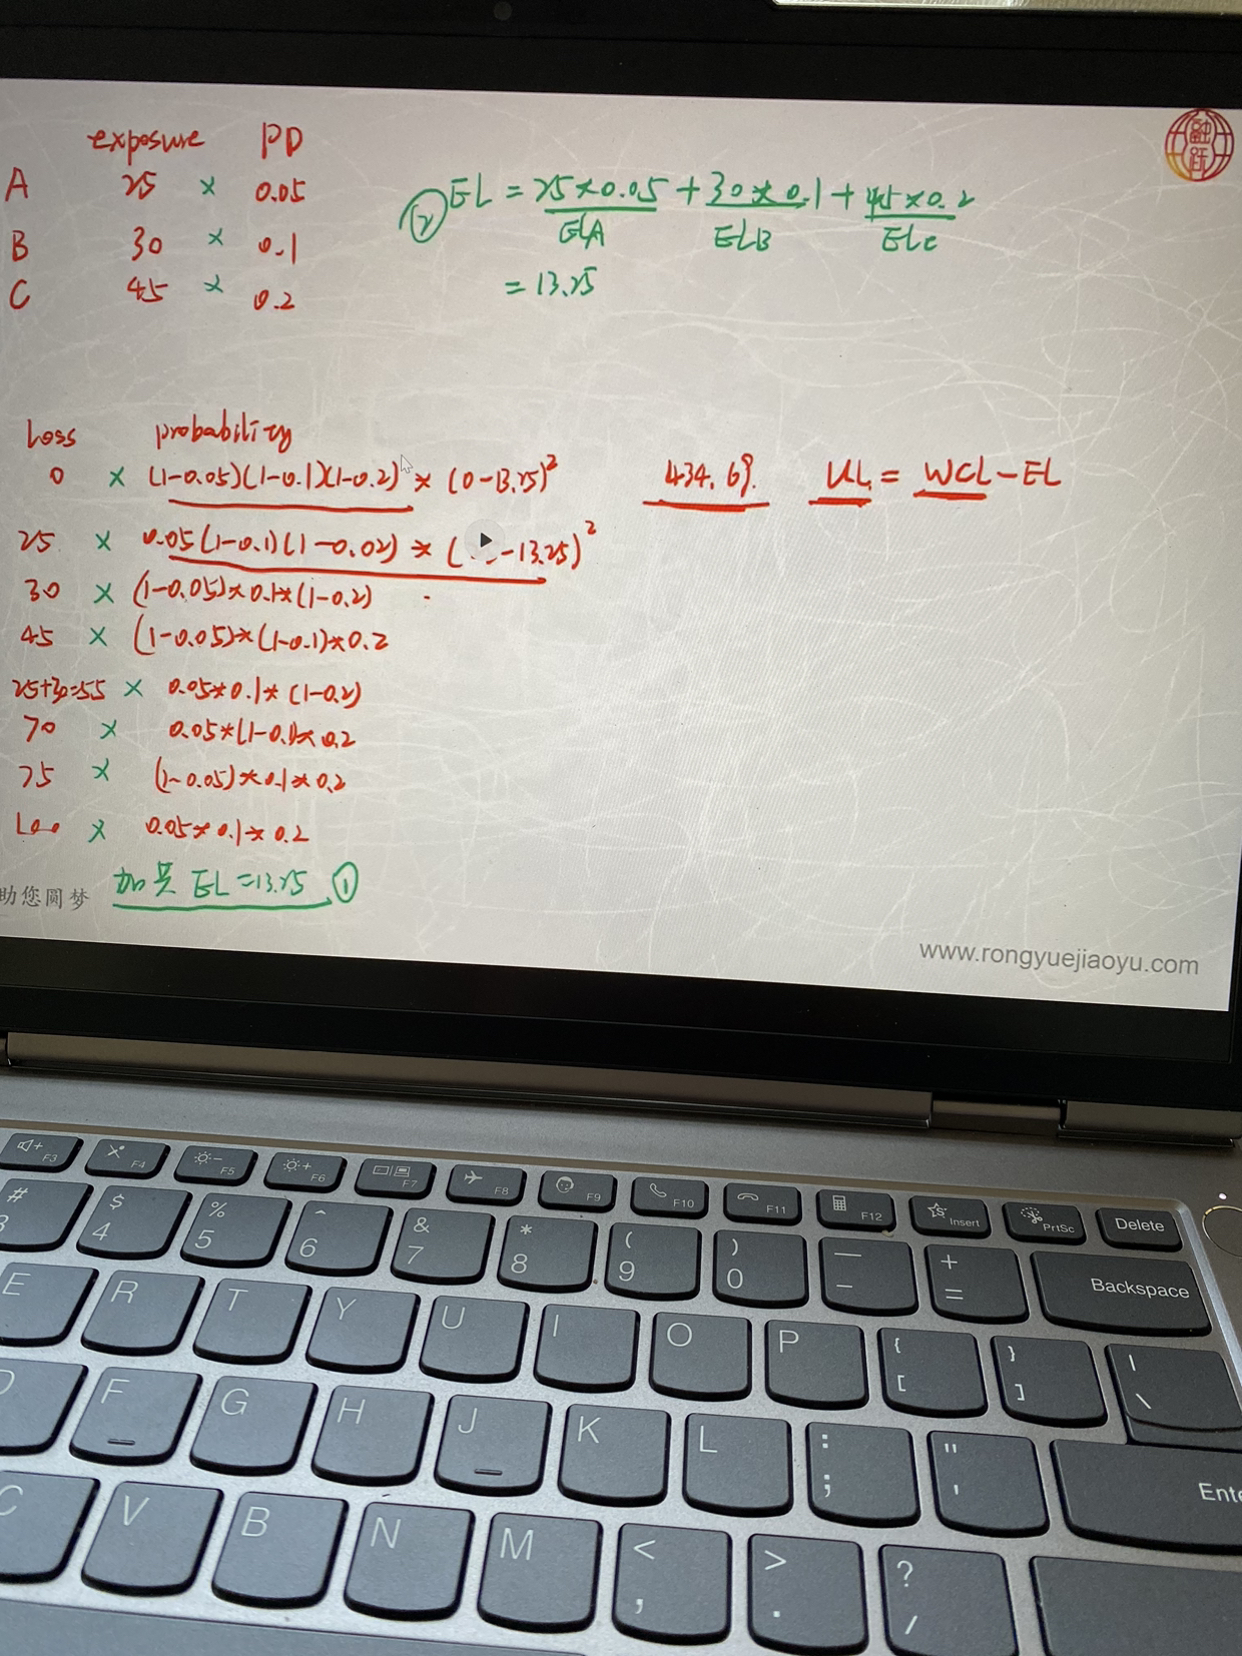 融跃
exposure PD
A 25 × 0.05
B 30 × 0.1
C 45 × 0.2
② EL = 25×0.05 + 30×0.1 + 45×0.2
ELA ELB ELC
= 13.25
Loss probability
0 × (1-0.05)(1-0.1)(1-0.2) × (0-13.25)²
434.69. UL = WCL-EL
25 × 0.05(1-0.1)(1-0.02) × ( -13.25)²
30 × (1-0.05)×0.1×(1-0.2)
45 × (1-0.05)×(1-0.1)×0.2
25+30=55 × 0.05×0.1×(1-0.2)
70 × 0.05*(1-0.1)×0.2
75 × (1-0.05)×0.1×0.2
100 × 0.05×0.1×0.2
加总 EL=13.25 ①
助您圆梦
www.rongyuejiaoyu.com
F3 F4 F5 F6 F7 F8 F9 F10 F11 F12 Insert PrtSc Delete
# 3 $ 4 % 5 ^ 6 & 7 * 8 ( 9 ) 0 — - + = Backspace
E R T Y U I O P { [ } ] | \
D F G H J K L : ; " ' Ente
C V B N M < , > . ? /